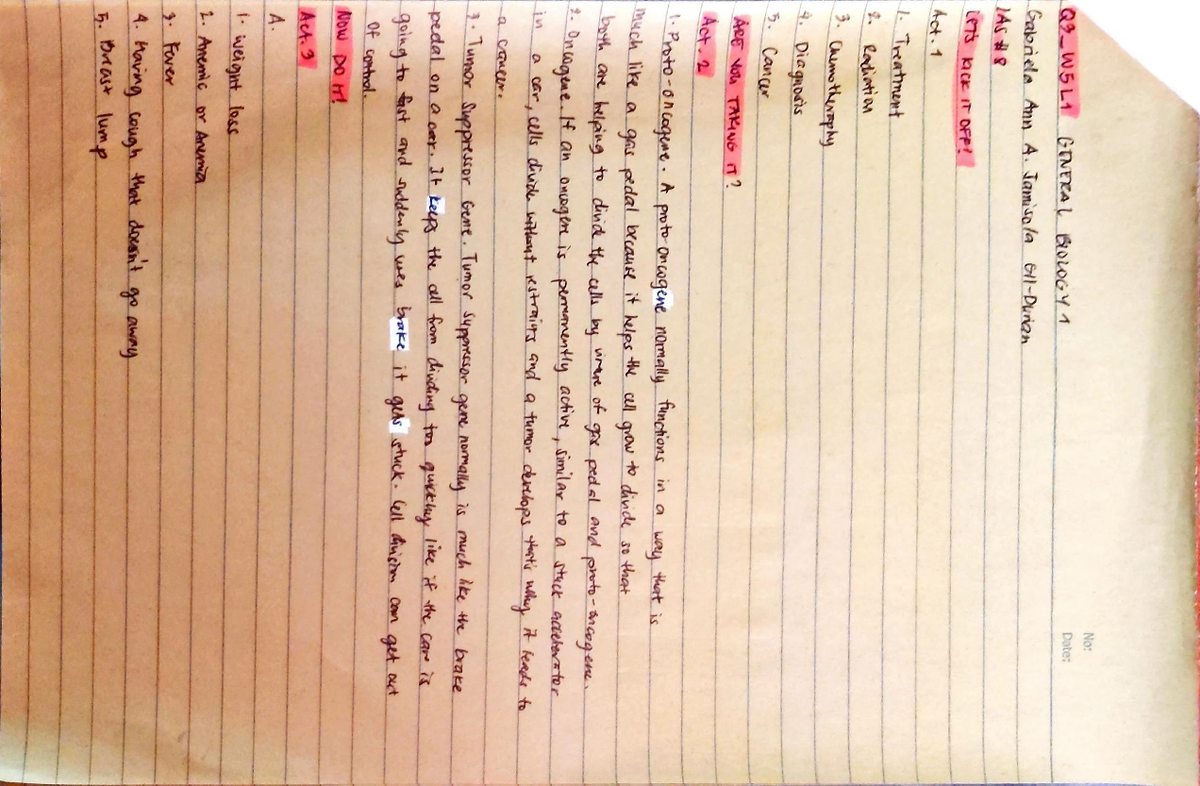 No:
Date:
Q3_W5L1 GENERAL BIOLOGY 1
Gabriela Ann A. Jamisola G11-Durian
LAS #8
LET'S KICK IT OFF!
Act. 1
1. Treatment
2. Radiation
3. Chemotheraphy
4. Diagnosis
5. Cancer
ARE YOU TAKING IT?
Act. 2
1. Proto-oncogene. A proto-oncogene normally functions in a way that is
much like a gas pedal because it helps the cell grow to divide so that
both are helping to divide the cells by virtue of gas pedal and proto-oncogene.
2. Oncogene. If an oncogene is permanently active, similar to a stuck accelerator
in a car, cells divide without restraints and a tumor develops that's why it leads to
a cancer.
3. Tumor Suppressor Gene. Tumor suppressor gene normally is much like the brake
pedal on a car. It keeps the cell from dividing too quickly like if the care is
going to fast and suddenly uses brake it gets stuck. Cell division can get out
of control.
NOW DO IT!
Act. 3
A.
1. weight loss
2. Anemic or Anemia
3. Fever
4. Having cough that doesn't go away
5. Breast lump